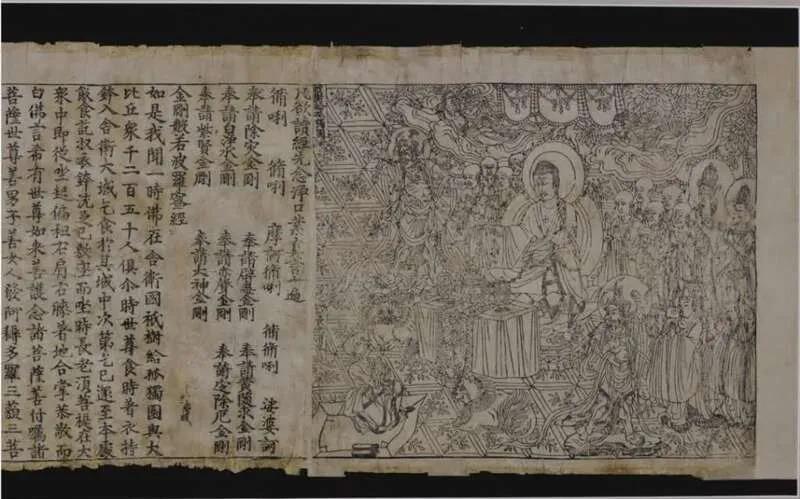 凡欲讀經先念淨口業真言一遍
脩唎 脩唎 摩訶脩唎 脩脩唎 娑婆訶
奉請除灾金剛 奉請辟毒金剛 奉請黃隨求金剛
奉請白淨水金剛 奉請赤聲金剛 奉請定除厄金剛
奉請紫賢金剛 奉請大神金剛
金剛般若波羅蜜經
如是我聞一時佛在舍衛國祇樹給孤獨園與大
比丘衆千二百五十人俱尒時世尊食時着衣持
鉢入舍衛大城乞食於其城中次第乞已還至本處
飯食訖收衣鉢洗足已敷座而坐時長老須菩提在大
衆中即從坐起偏袒右肩右膝著地合掌恭敬而
白佛言希有世尊如來善護念諸菩薩善付囑諸
菩薩世尊善男子善女人發阿耨多羅三藐三菩